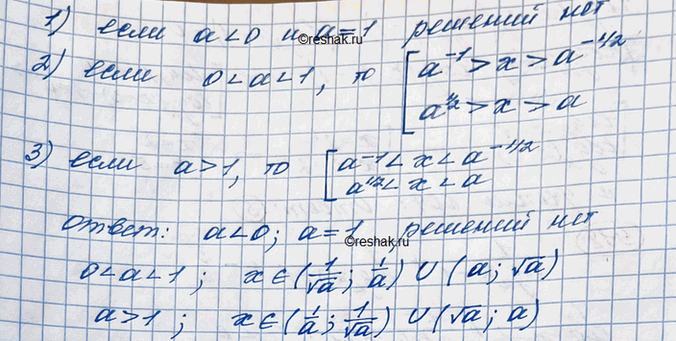 1) если a<0 и a=1 решений нет
©reshak.ru
2) если 0<a<1, то [ a^{-1} > x > a^{-1/2}
a^{1/2} > x > a
3) если a>1, то [ a^{-1} < x < a^{-1/2}
a^{1/2} < x < a
ответ: a<0; a=1 решений нет
©reshak.ru
0<a<1; x∈(1/√a; 1/a) ∪ (a; √a)
a>1; x∈(1/a; 1/√a) ∪ (√a; a)